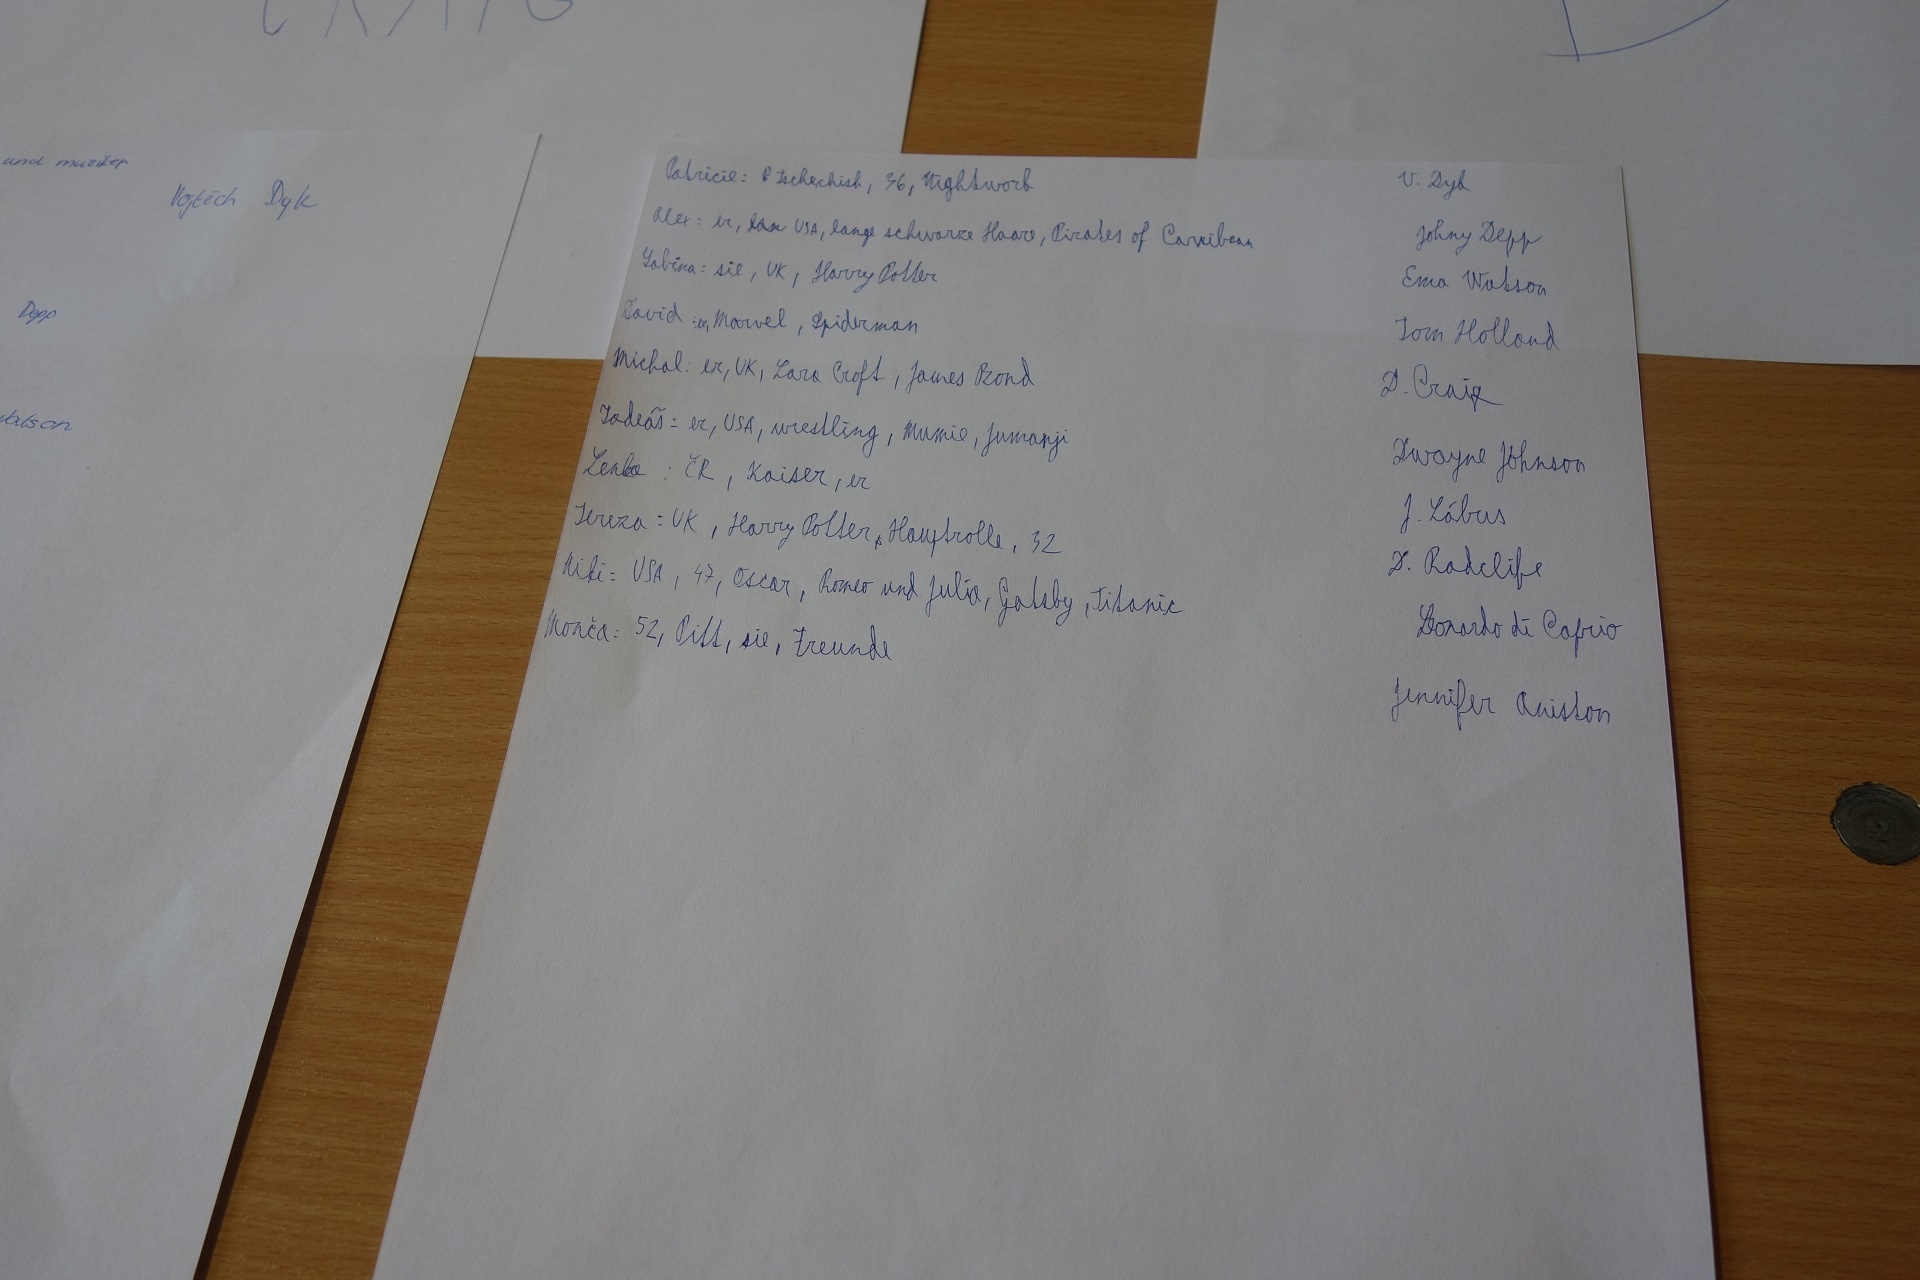 CRAIG
und musiker
Vojtěch Dyk
Depp
Watson
Patricie: tschechish, 36, Nightwork V. Dyk
Alex: er, USA, lange schwarze Haare, Pirates of Carribean Johny Depp
Sabina: sie, UK, Harry Potter Ema Watson
David: er, Marvel, Spiderman Tom Holland
Michal: er, UK, Lara Croft, James Bond D. Craig
Tadeáš: er, USA, wrestling, Mumie, Jumanji Dwayne Johnson
Lenka: ČR, Kaiser, er J. Lábus
Tereza: UK, Harry Potter, Hauptrolle, 32 D. Radclife
Niki: USA, 47, Oscar, Romeo und Julia, Gatsby, Titanic Leonardo di Caprio
Monča: 52, Pitt, sie, Freunde Jennifer Aniston